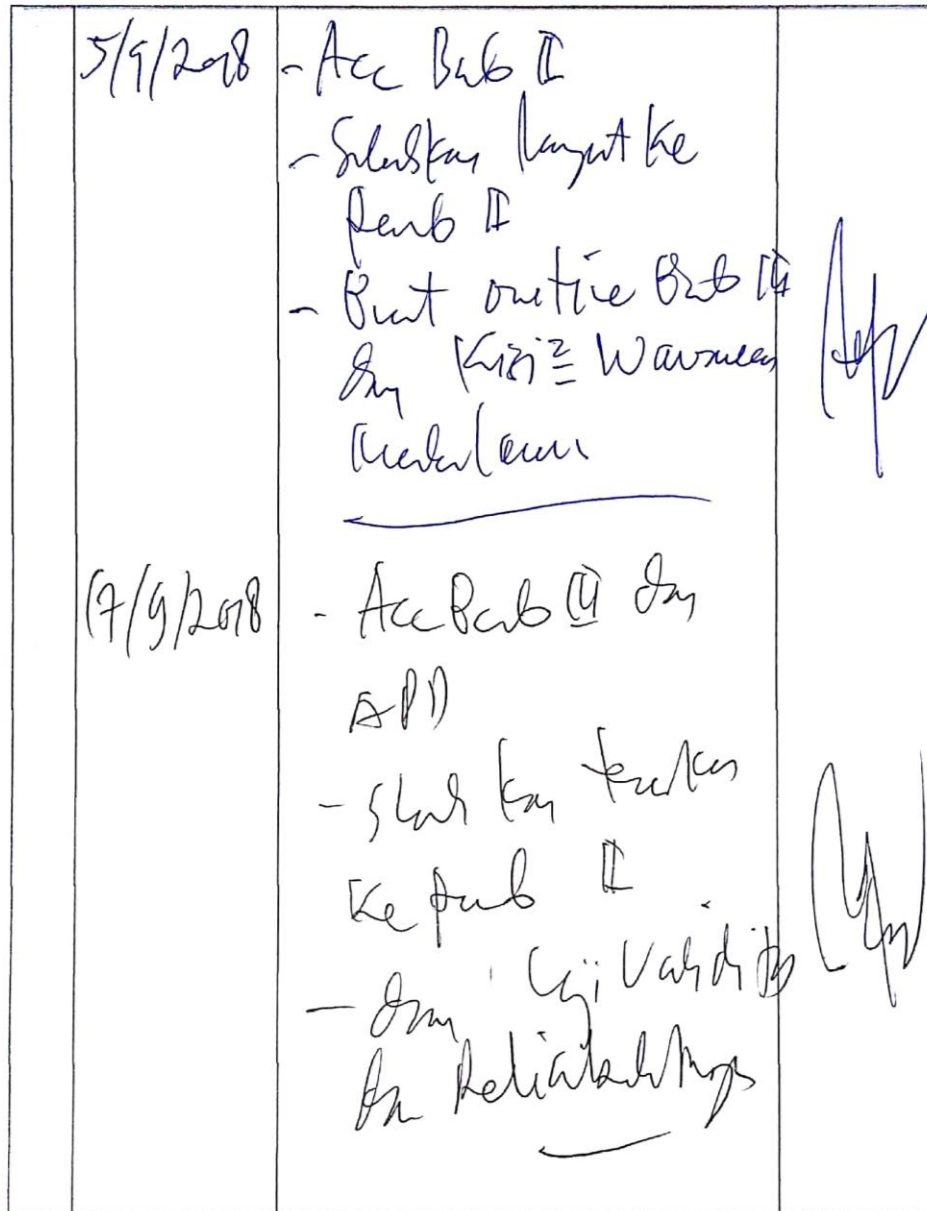 5/9/2018 - Acc Bab II
- Silahkan lanjut ke
Pemb II
- Buat outline Bab III
dan Kisi2
17/9/2018 - Acc Bab III dan
APD
- Silahkan teruskan
Ke Pemb II
- dan Uji Validitas
dan Reliabilitasnya